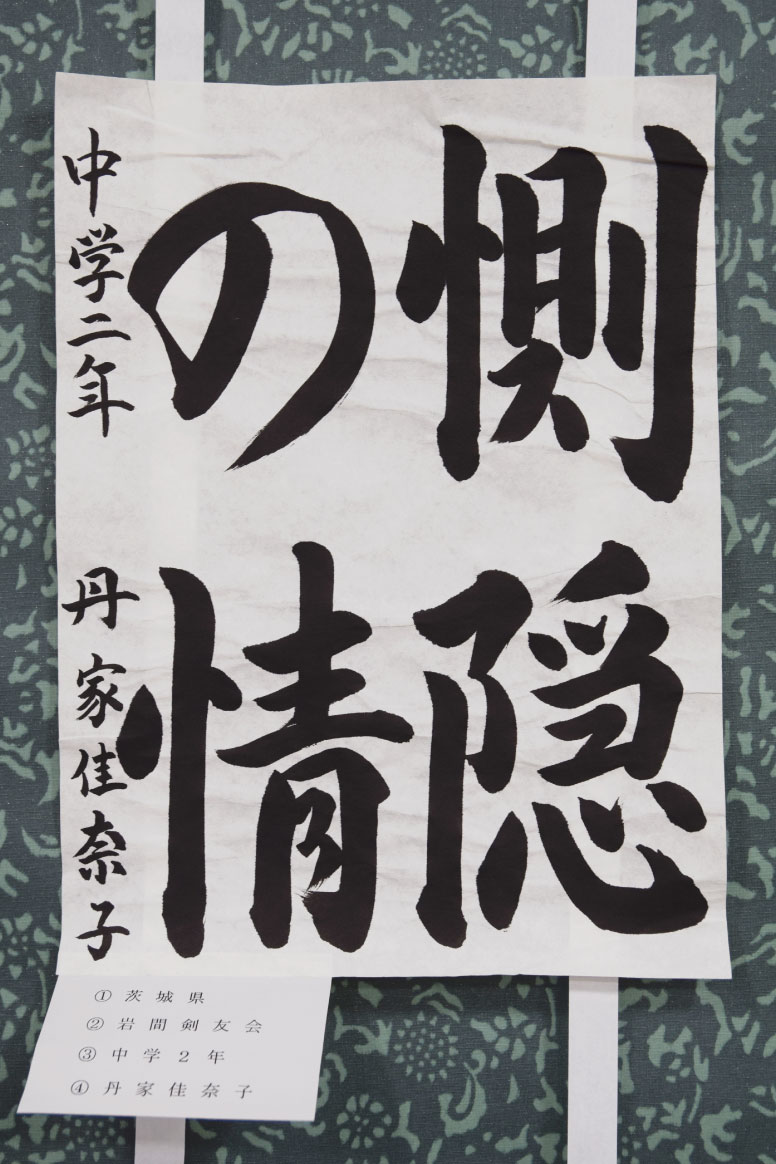 惻隠
の情
中学二年 丹家佳奈子
① 茨城県
② 岩間剣友会
③ 中学2年
④ 丹家佳奈子